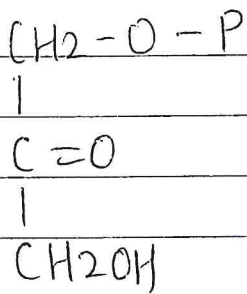 CH2-O-P
|
C=O
|
CH2OH